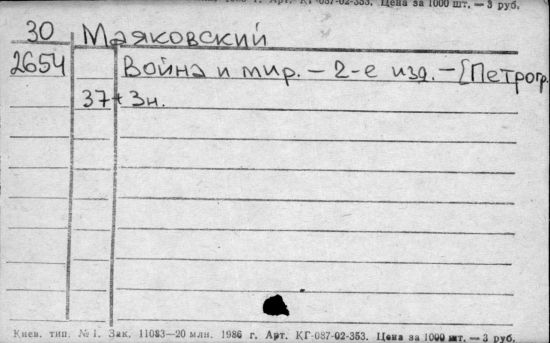 Арт. КГ-087-02-353. Цена за 1000 шт. — 3 руб.
30 Маяковский
2654 Война и мир. — 2-е изд. — [Петрогр.
37+3н.
Киев. тип. № 1. Зак. 11083—20 млн. 1986 г. Арт. КГ-087-02-353. Цена за 1000 шт. — 3 руб.